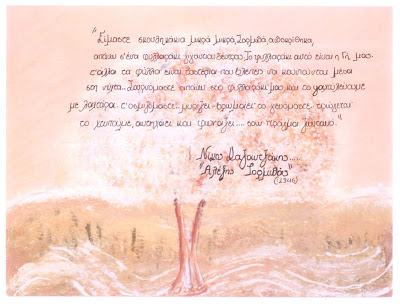 "Είμαστε σκουληκάκια μικρά μικρά, Ζορμπά, αποκρίθηκα,
απάνω σ'ένα φυλλαράκι γιγάντιου δέντρου. Το φυλλαράκι αυτό είναι η Γή μας.
τ'άλλα τα φύλλα είναι τ'αστέρια που βλέπεις να κουνιούνται μέσα
στη νύχτα.. Σερνόμαστε απάνω στο φυλλαράκι μας και το ψαχουλεύουμε
με λαχτάρα. τ'οσμιζόμαστε.. μυρίζει- βρωμάει. το γευόμαστε τρώγεται.
το χτυπούμε, αντηχάει και φωνάζει.... σαν πράμα ζωντανό."
Νίκος Καζαντζάκης....
"Αλέξης Ζορμπάς"
(1946)